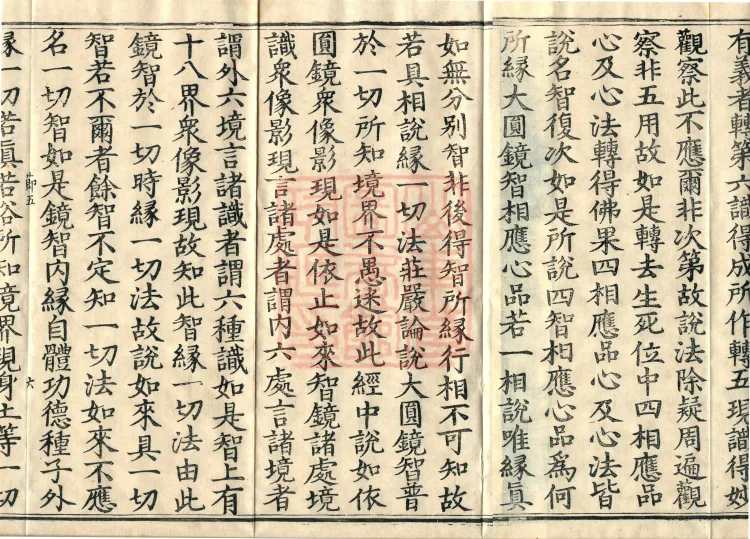 有義者轉第六識得成所作轉五現識得妙
觀察此不應爾非次第故說法除疑周遍觀
察非五用故如是轉去生死位中四相應品
心及心法轉得佛果四相應品心及心法皆
說名智復次如是所說四智相應心品爲何
所緣大圓鏡智相應心品若一相說唯緣眞
如無分别智非後得智所緣行相不可知故
若具相說緣一切法莊嚴論說大圓鏡智普
於一切所知境界不愚迷故此經中說如依
圓鏡衆像影現如是依止如來智鏡諸處境
識衆像影現言諸處者謂内六處言諸境者
謂外六境言諸識者謂六種識如是智上有
十八界衆像影現故知此智緣一切法由此
鏡智於一切時緣一切法故說如來具一切
智若不爾者餘智不定知一切法如來不應
名一切智如是鏡智内緣自體功德種子外
節五
六
緣一切若眞若俗所知境界現身土等一切